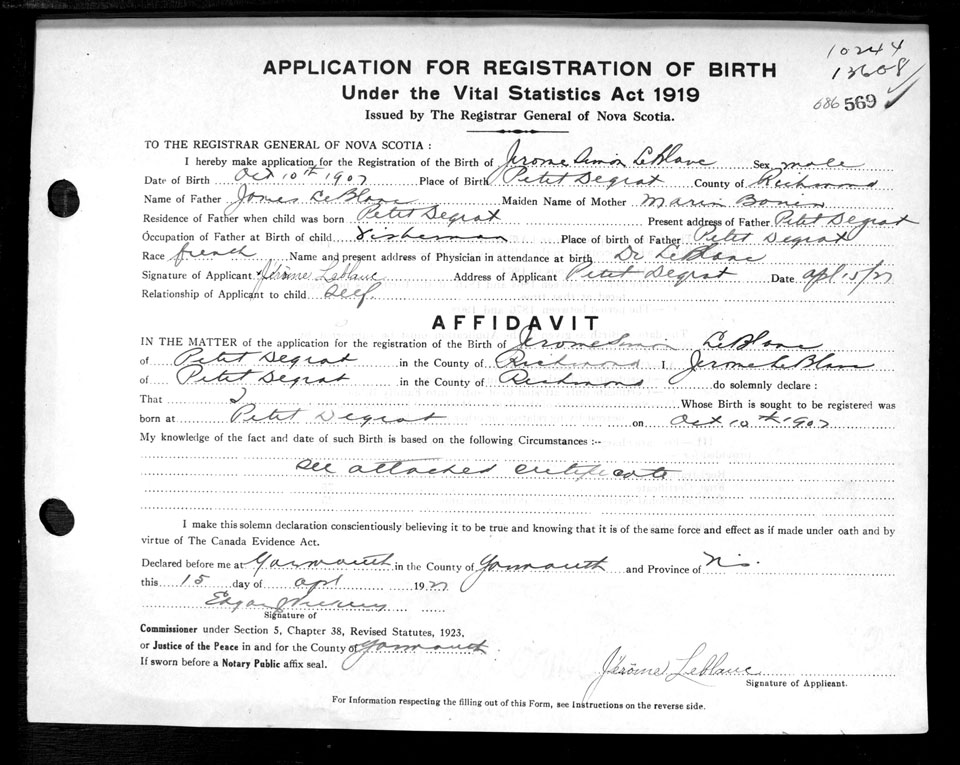 10244
13608
686 569
APPLICATION FOR REGISTRATION OF BIRTH
Under the Vital Statistics Act 1919
Issued by The Registrar General of Nova Scotia.
TO THE REGISTRAR GENERAL OF NOVA SCOTIA :
I hereby make application for the Registration of the Birth of Jerome Simon LeBlanc Sex male
Date of Birth Oct 10th 1907 Place of Birth Petit Degrat County of Richmond
Name of Father James LeBlanc Maiden Name of Mother Maria
Residence of Father when child was born Petit Degrat Present address of Father Petit Degrat
Occupation of Father at Birth of child Fisherman Place of birth of Father Petit Degrat
Race french Name and present address of Physician in attendance at birth Dr LeBlanc
Signature of Applicant Jérôme Leblanc Address of Applicant Petit Degrat Date Apl 15/27
Relationship of Applicant to child Self.
AFFIDAVIT
IN THE MATTER of the application for the registration of the Birth of Jerome Simon LeBlanc
of Petit Degrat in the County of Richmond I Jerome LeBlanc
of Petit Degrat in the County of Richmond do solemnly declare :
That I Whose Birth is sought to be registered was
born at Petit Degrat on Oct 10th 1907
My knowledge of the fact and date of such Birth is based on the following Circumstances :--
see attached certificate
I make this solemn declaration conscientiously believing it to be true and knowing that it is of the same force and effect as if made under oath and by
virtue of The Canada Evidence Act.
Declared before me at Yarmouth in the County of Yarmouth and Province of N.S.
this 15 day of Apl 1927
Edgar
Signature of
Commissioner under Section 5, Chapter 38, Revised Statutes, 1923,
or Justice of the Peace in and for the County of Yarmouth
If sworn before a Notary Public affix seal.
Jérôme Leblanc
Signature of Applicant.
For Information respecting the filling out of this Form, see Instructions on the reverse side.